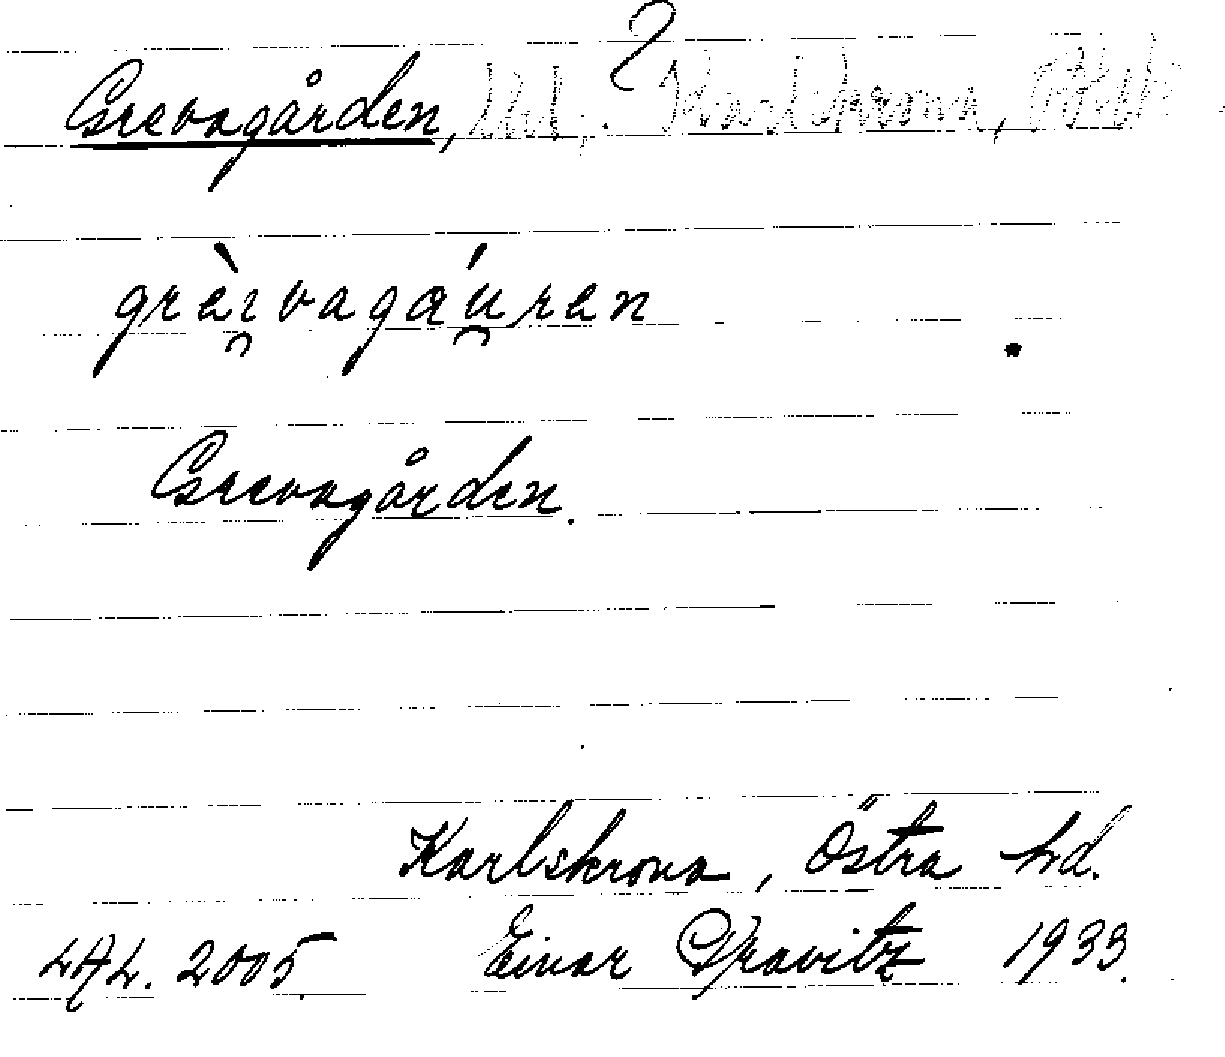 Grevagården, ? Karlskrona,
grèi̯vagáu̯ren
Grevagården.
Karlskrona, Östra hd.
LAL. 2005. Einar Kravitz 1933.